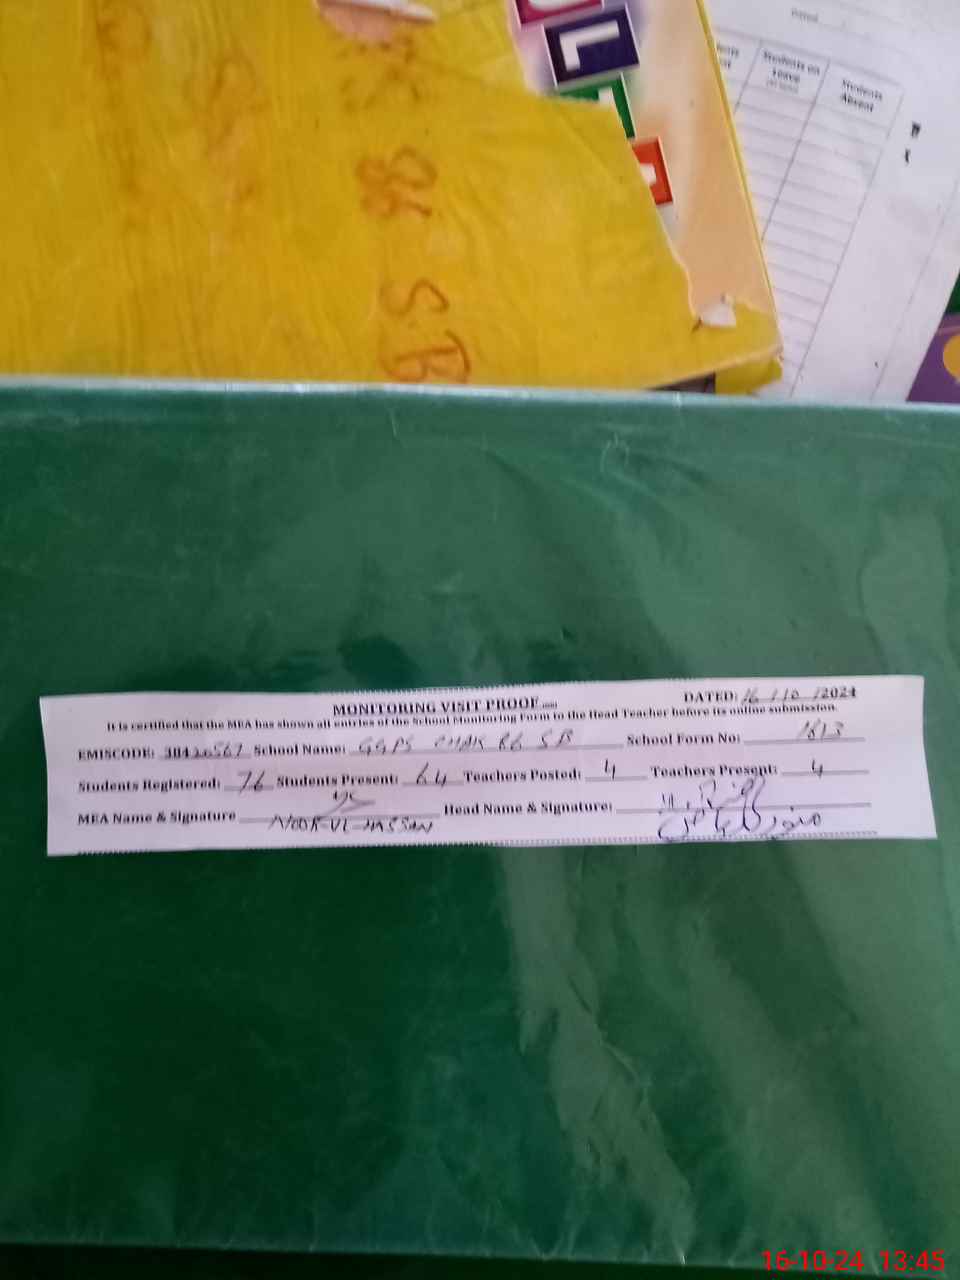 Dated
Students on
Leave
Students
Absent
L
86
S.B
MONITORING VISIT PROOF
DATED: 16 / 10 /2024
It is certified that the MEA has shown all entries of the School Monitoring Form to the Head Teacher before its online submission.
EMISCODE: 38420567 School Name: GGPS CHAK 86 SB School Form No: 1813
Students Registered: 76 Students Present: 64 Teachers Posted: 4 Teachers Present: 4
MEA Name & Signature Head Name & Signature:
NOOR-UL-HASSAN
16-10-24 13:45